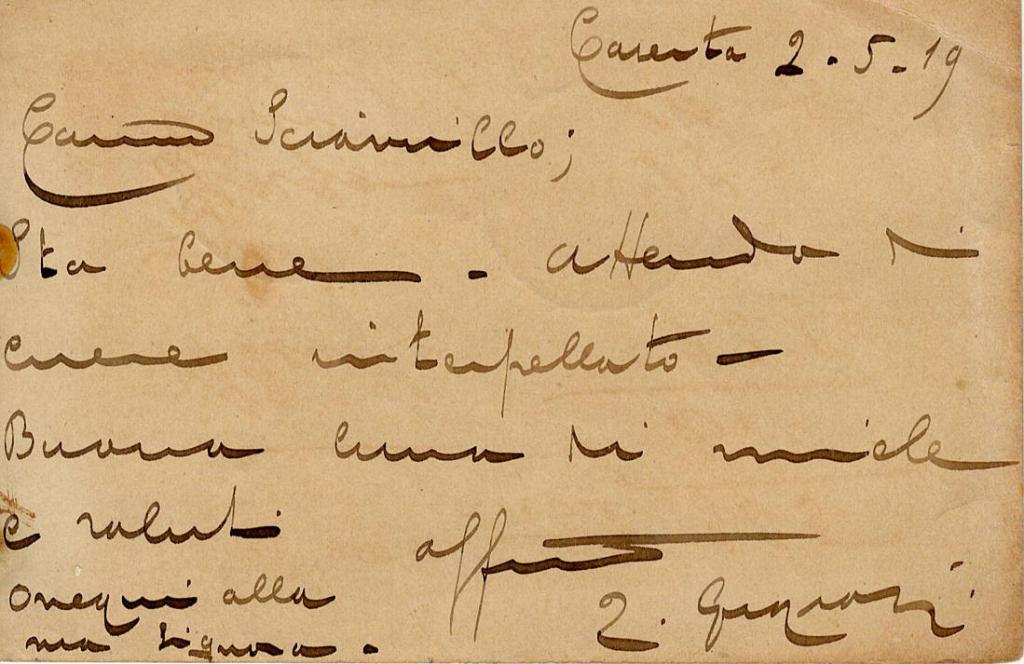 Caserta 2-5-19
Carmo Sciarrillo;
Sta bene - attendo di
essere interpellato -
Buona luna di miele
e saluti affmi
ossequi alla
sua signora -